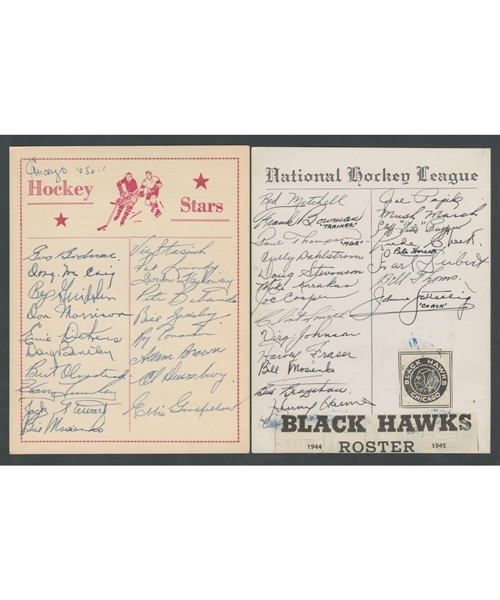 Chicago 1950-1
Hockey
Stars
Gus Bodnar
Doug McCaig
Bep Guidolin
Don Morrison
Ernie Dickens
Doug Bentley
Bert Olmstead
Harry Lumley
Jack Stewart
Bill Mosienko
Vic Stasiuk
Pat Lundy
Pete Babando
Bill Gadsby
Roy Conacher
Adam Brown
Al Dewsbury
Ebbie Goodfellow
National Hockey League
Red Mitchell
Frank Bowman
"TRAINER"
Paul Thompson
"MGR"
Cully Dahlstrom
Doug Stevenson
Mike Karakas
Joe Cooper
Clint Smith
Virg Johnson
Harvey Fraser
Bill Mosienko
Joe Papike
Mush March
Pete Horeck
Bill Thoms
Johnny Gottselig
"COACH"
BLACK HAWKS
CHICAGO
BLACK HAWKS
1944 ROSTER 1945